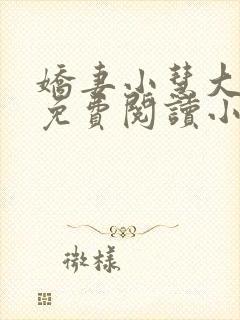 嬌妻小慧大
免費閱讀小
微樣